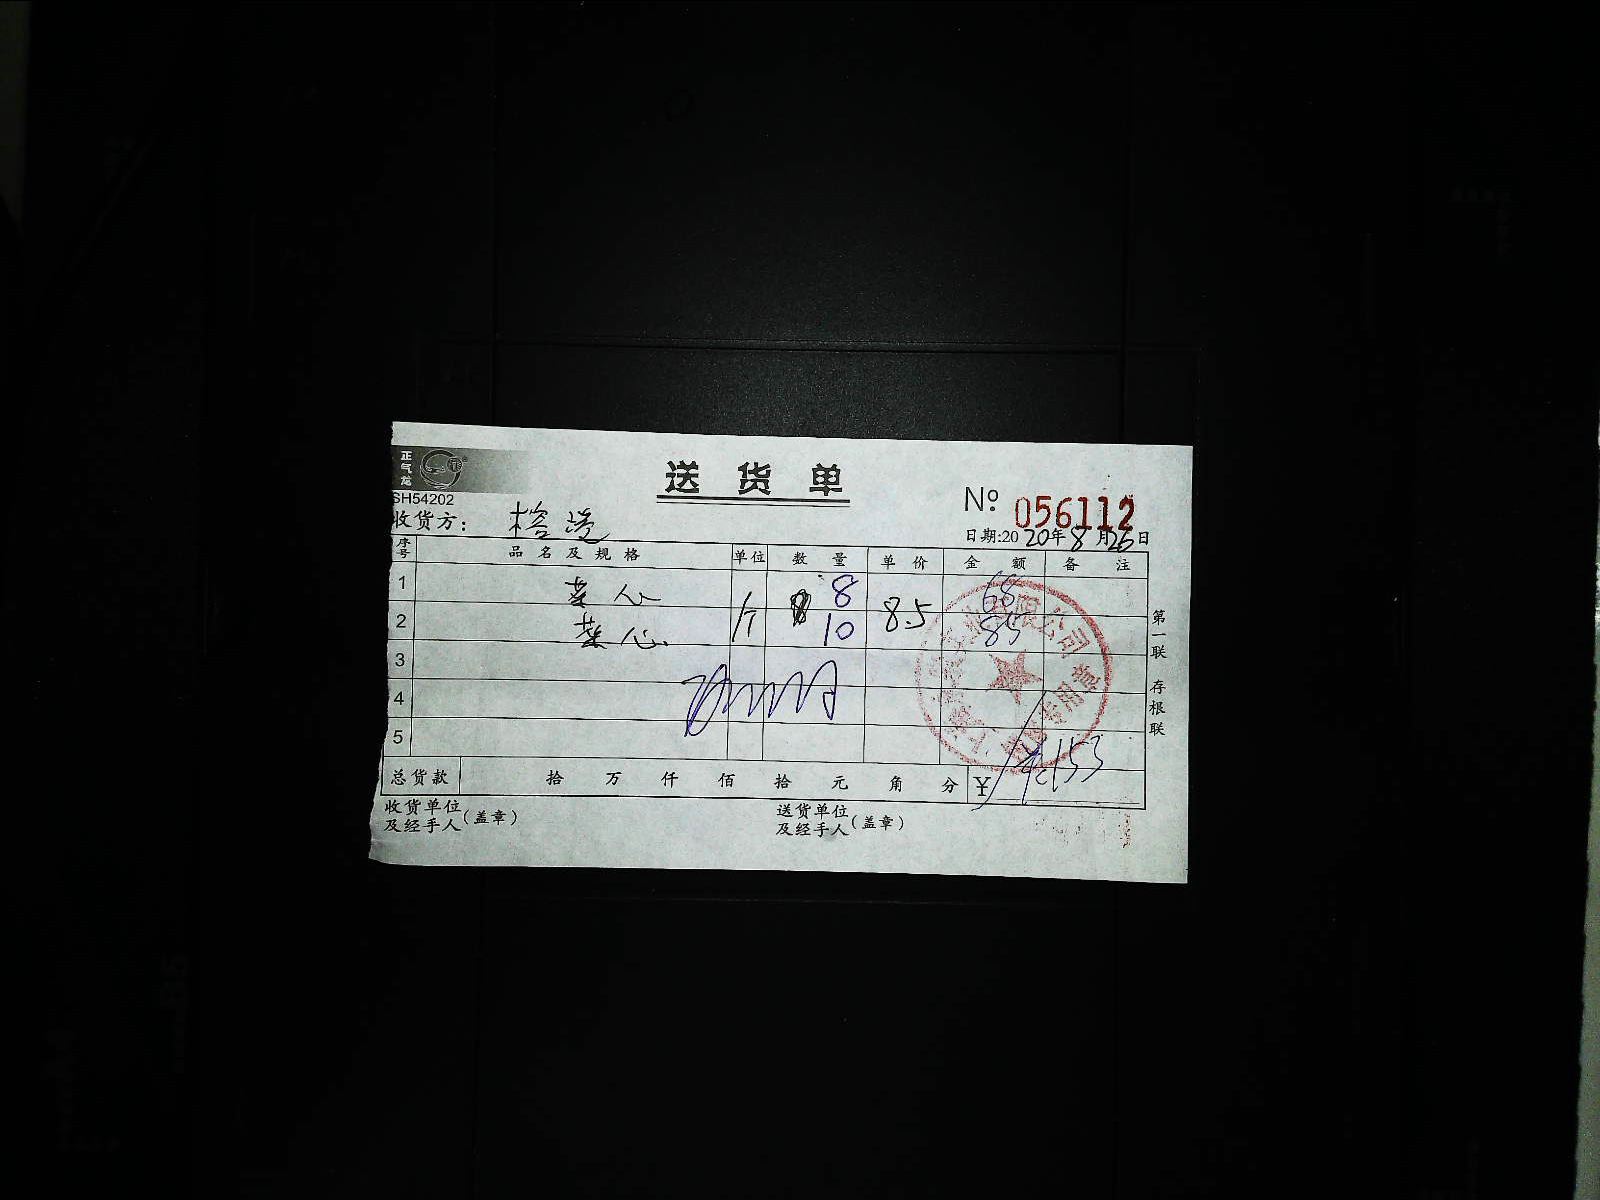 正气龙
SH54202
送货单
№ 056112
收货方：
日期:2020年8月26日
序号 品名及规格 单位 数量 单价 金额 备注
1 菜心 8 68
2 菜心 斤 10 8.5 85
3
4
5
总货款 拾 万 仟 佰 拾 元 角 分 ¥ 153
收货单位及经手人(盖章)
送货单位及经手人(盖章)
第一联 存根联
有限公司
专用章